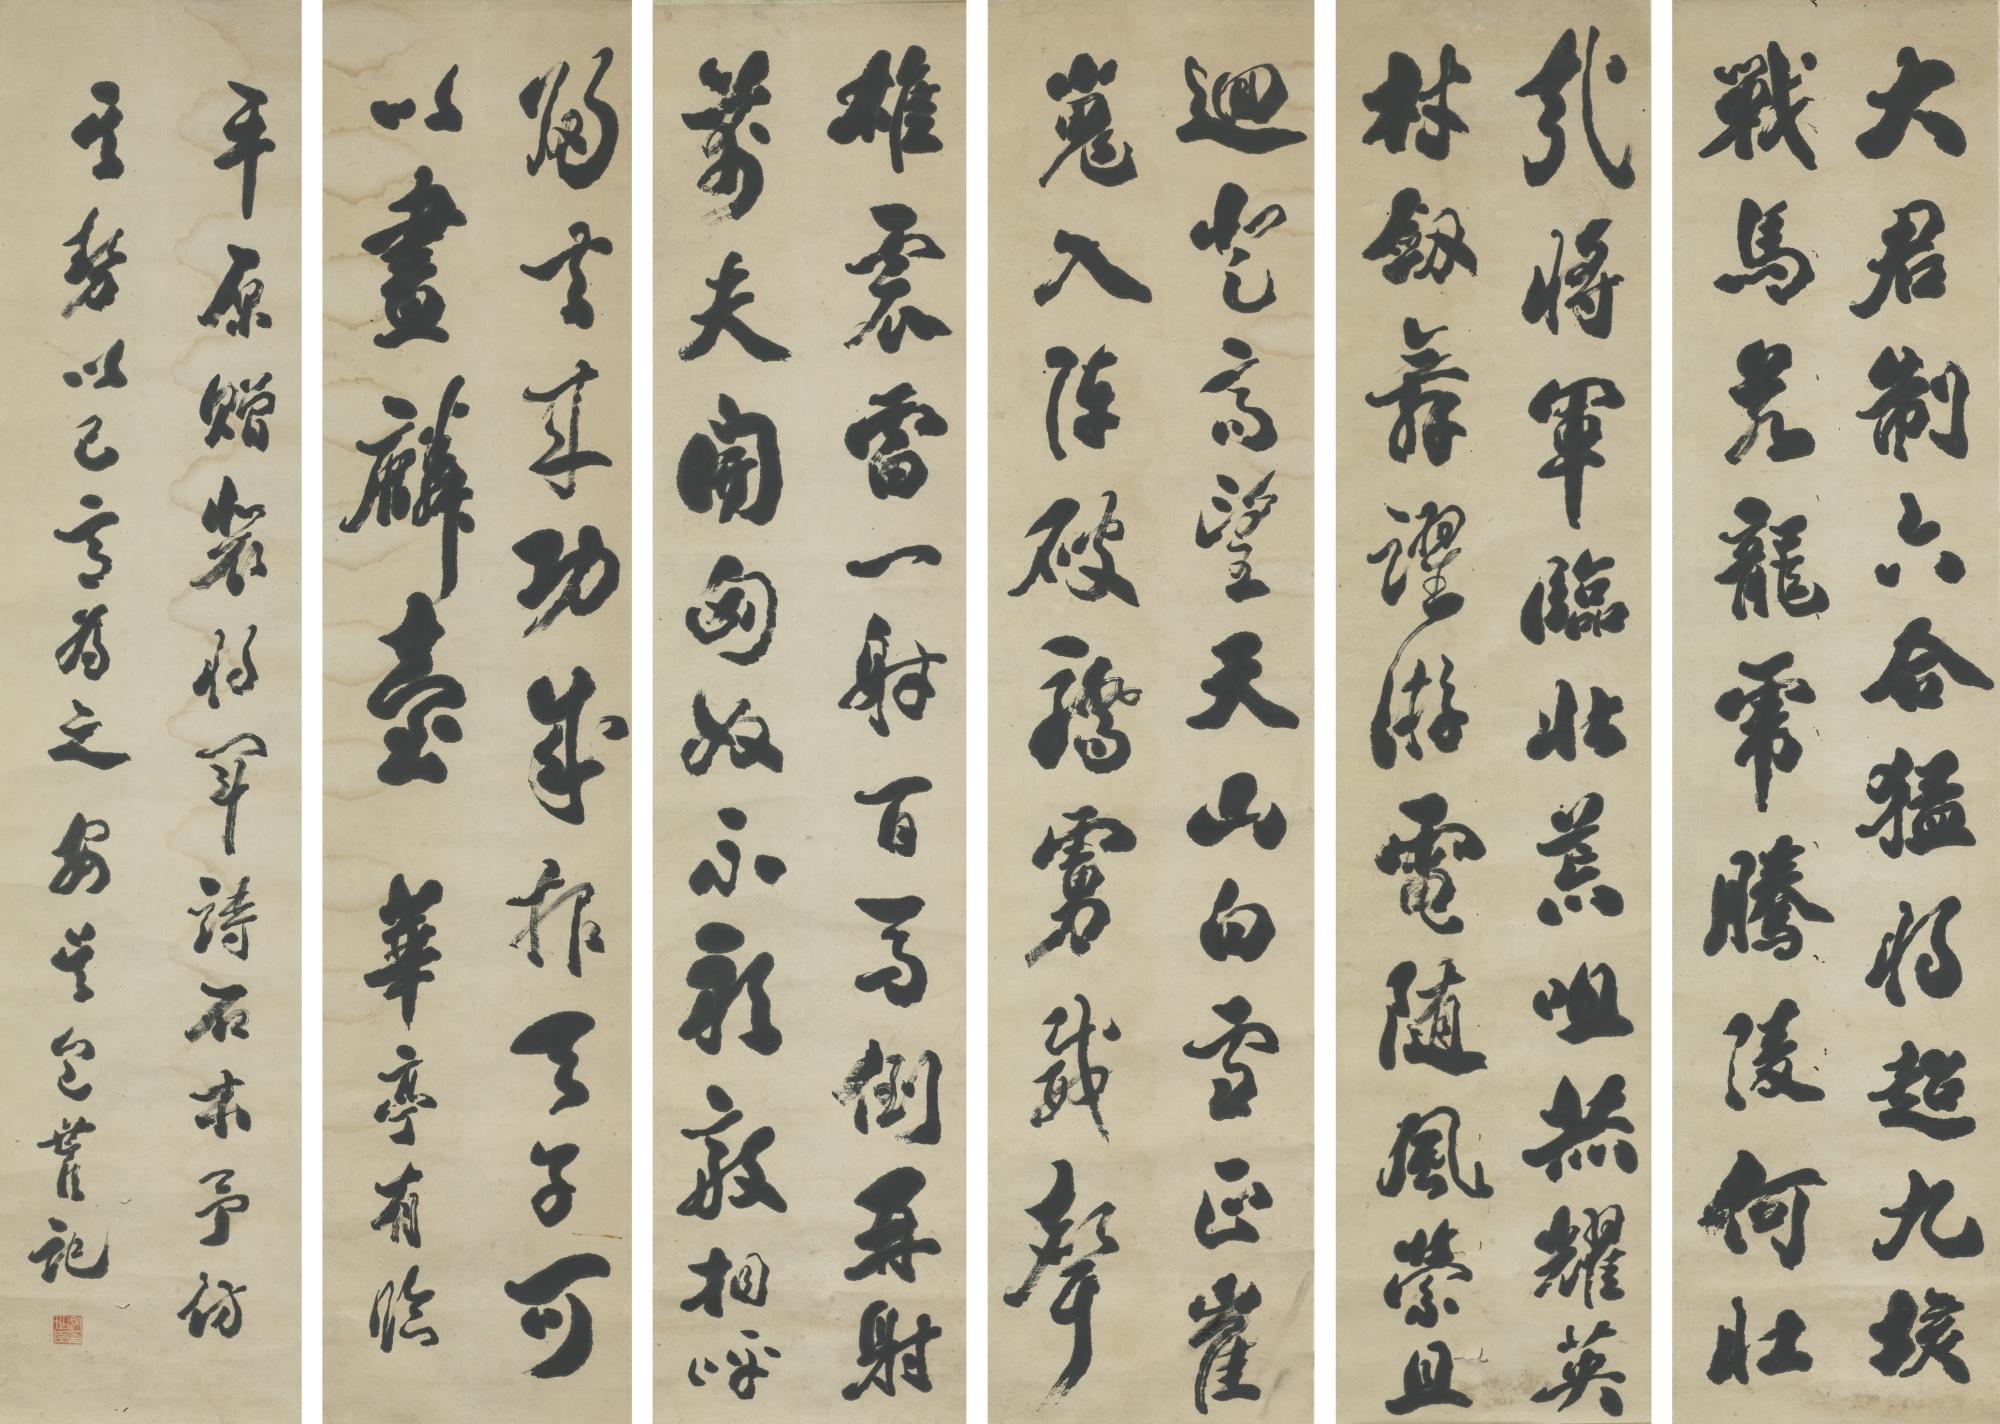 大君制六合猛將超九垓
戰馬若龍虎騰陵何壯
哉將軍臨北荒烜赫耀英
材劒舞躍游電隨風縈且
迴登高望天山白雪正崔
嵬入陣破驕虜威聲
雄震雷一射百馬倒再射
萬夫開匈奴不敢敵相呼
歸去來功成報天子可
以畫麟臺 華亭有臨
平原贈裴將軍詩石本予仿
其勢以己意為之安吳包世臣記